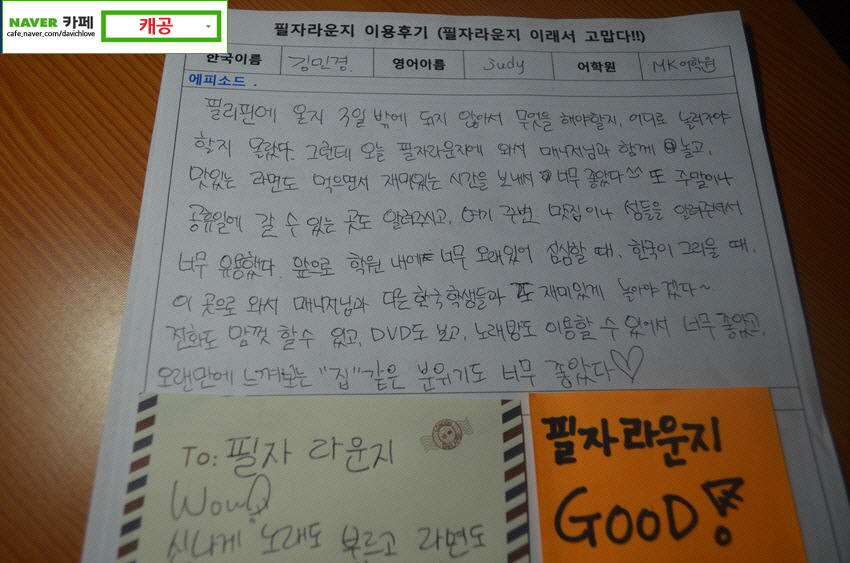 NAVER 카페
cafe.naver.com/davichlove
캐공
필자라운지 이용후기 (필자라운지 이래서 고맙다!!)
한국이름 김민경. 영어이름 Judy 어학원 MK어학원
에피소드.
필리핀에 온지 3일 밖에 되지 않아서 무엇을 해야할지, 어디로 놀러가야
할지 몰랐다. 그런데 오늘 필자라운지에 와서 매니저님과 함께 놀고,
맛있는 라면도 먹으면서 재미있는 시간을 보내서 너무 좋았다 또 주말이나
공휴일에 갈 수 있는 곳도 알려주시고, 여기 주변 맛집이나 성들을 알려주셔서
너무 유용했다. 앞으로 학원 내에 너무 오래있어 심심할 때, 한국이 그리울 때,
이 곳으로 와서 매니저님과 다른 한국학생들과 또 재미있게 놀아야겠다~
전화도 맘껏 할 수 있고, DVD도 보고, 노래방도 이용할 수 있어서 너무 좋았고,
오랜만에 느껴보는 "집"같은 분위기도 너무 좋았다♡
To: 필자 라운지
Wow!
신나게 노래도 부르고 라면도
필자라운지
GOOD!